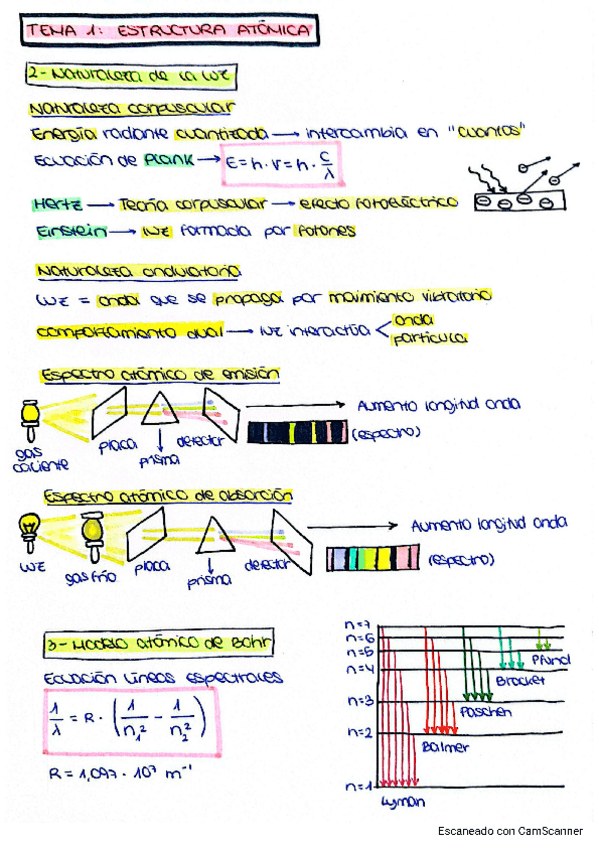 TEMA 1: ESTRUCTURA ATÓMICA
2- Naturaleza de la luz
Naturaleza corpuscular
Energía radiante cuantizada → intercambia en "cuantos"
Ecuación de Plank → E = h · ν = h · c/λ
Hertz → Teoría corpuscular → efecto fotoeléctrico
Einstein → luz formada por fotones
Naturaleza ondulatoria
luz = onda que se propaga por movimiento vibratorio
comportamiento dual → luz interactúa < onda
partícula
Espectro atómico de emisión
Aumento longitud onda
(espectro)
gas caliente
placa
prisma
detector
Espectro atómico de absorción
Aumento longitud onda
(espectro)
luz
gas frío
placa
prisma
detector
3- Modelo atómico de Bohr
Ecuación líneas espectrales
1/λ = R · (1/n₁² - 1/n₂²)
R = 1,097 · 10⁷ m⁻¹
n=7
n=6
n=5
Pfund
n=4
Bracket
n=3
Paschen
n=2
Balmer
n=1
Lyman
Escaneado con CamScanner